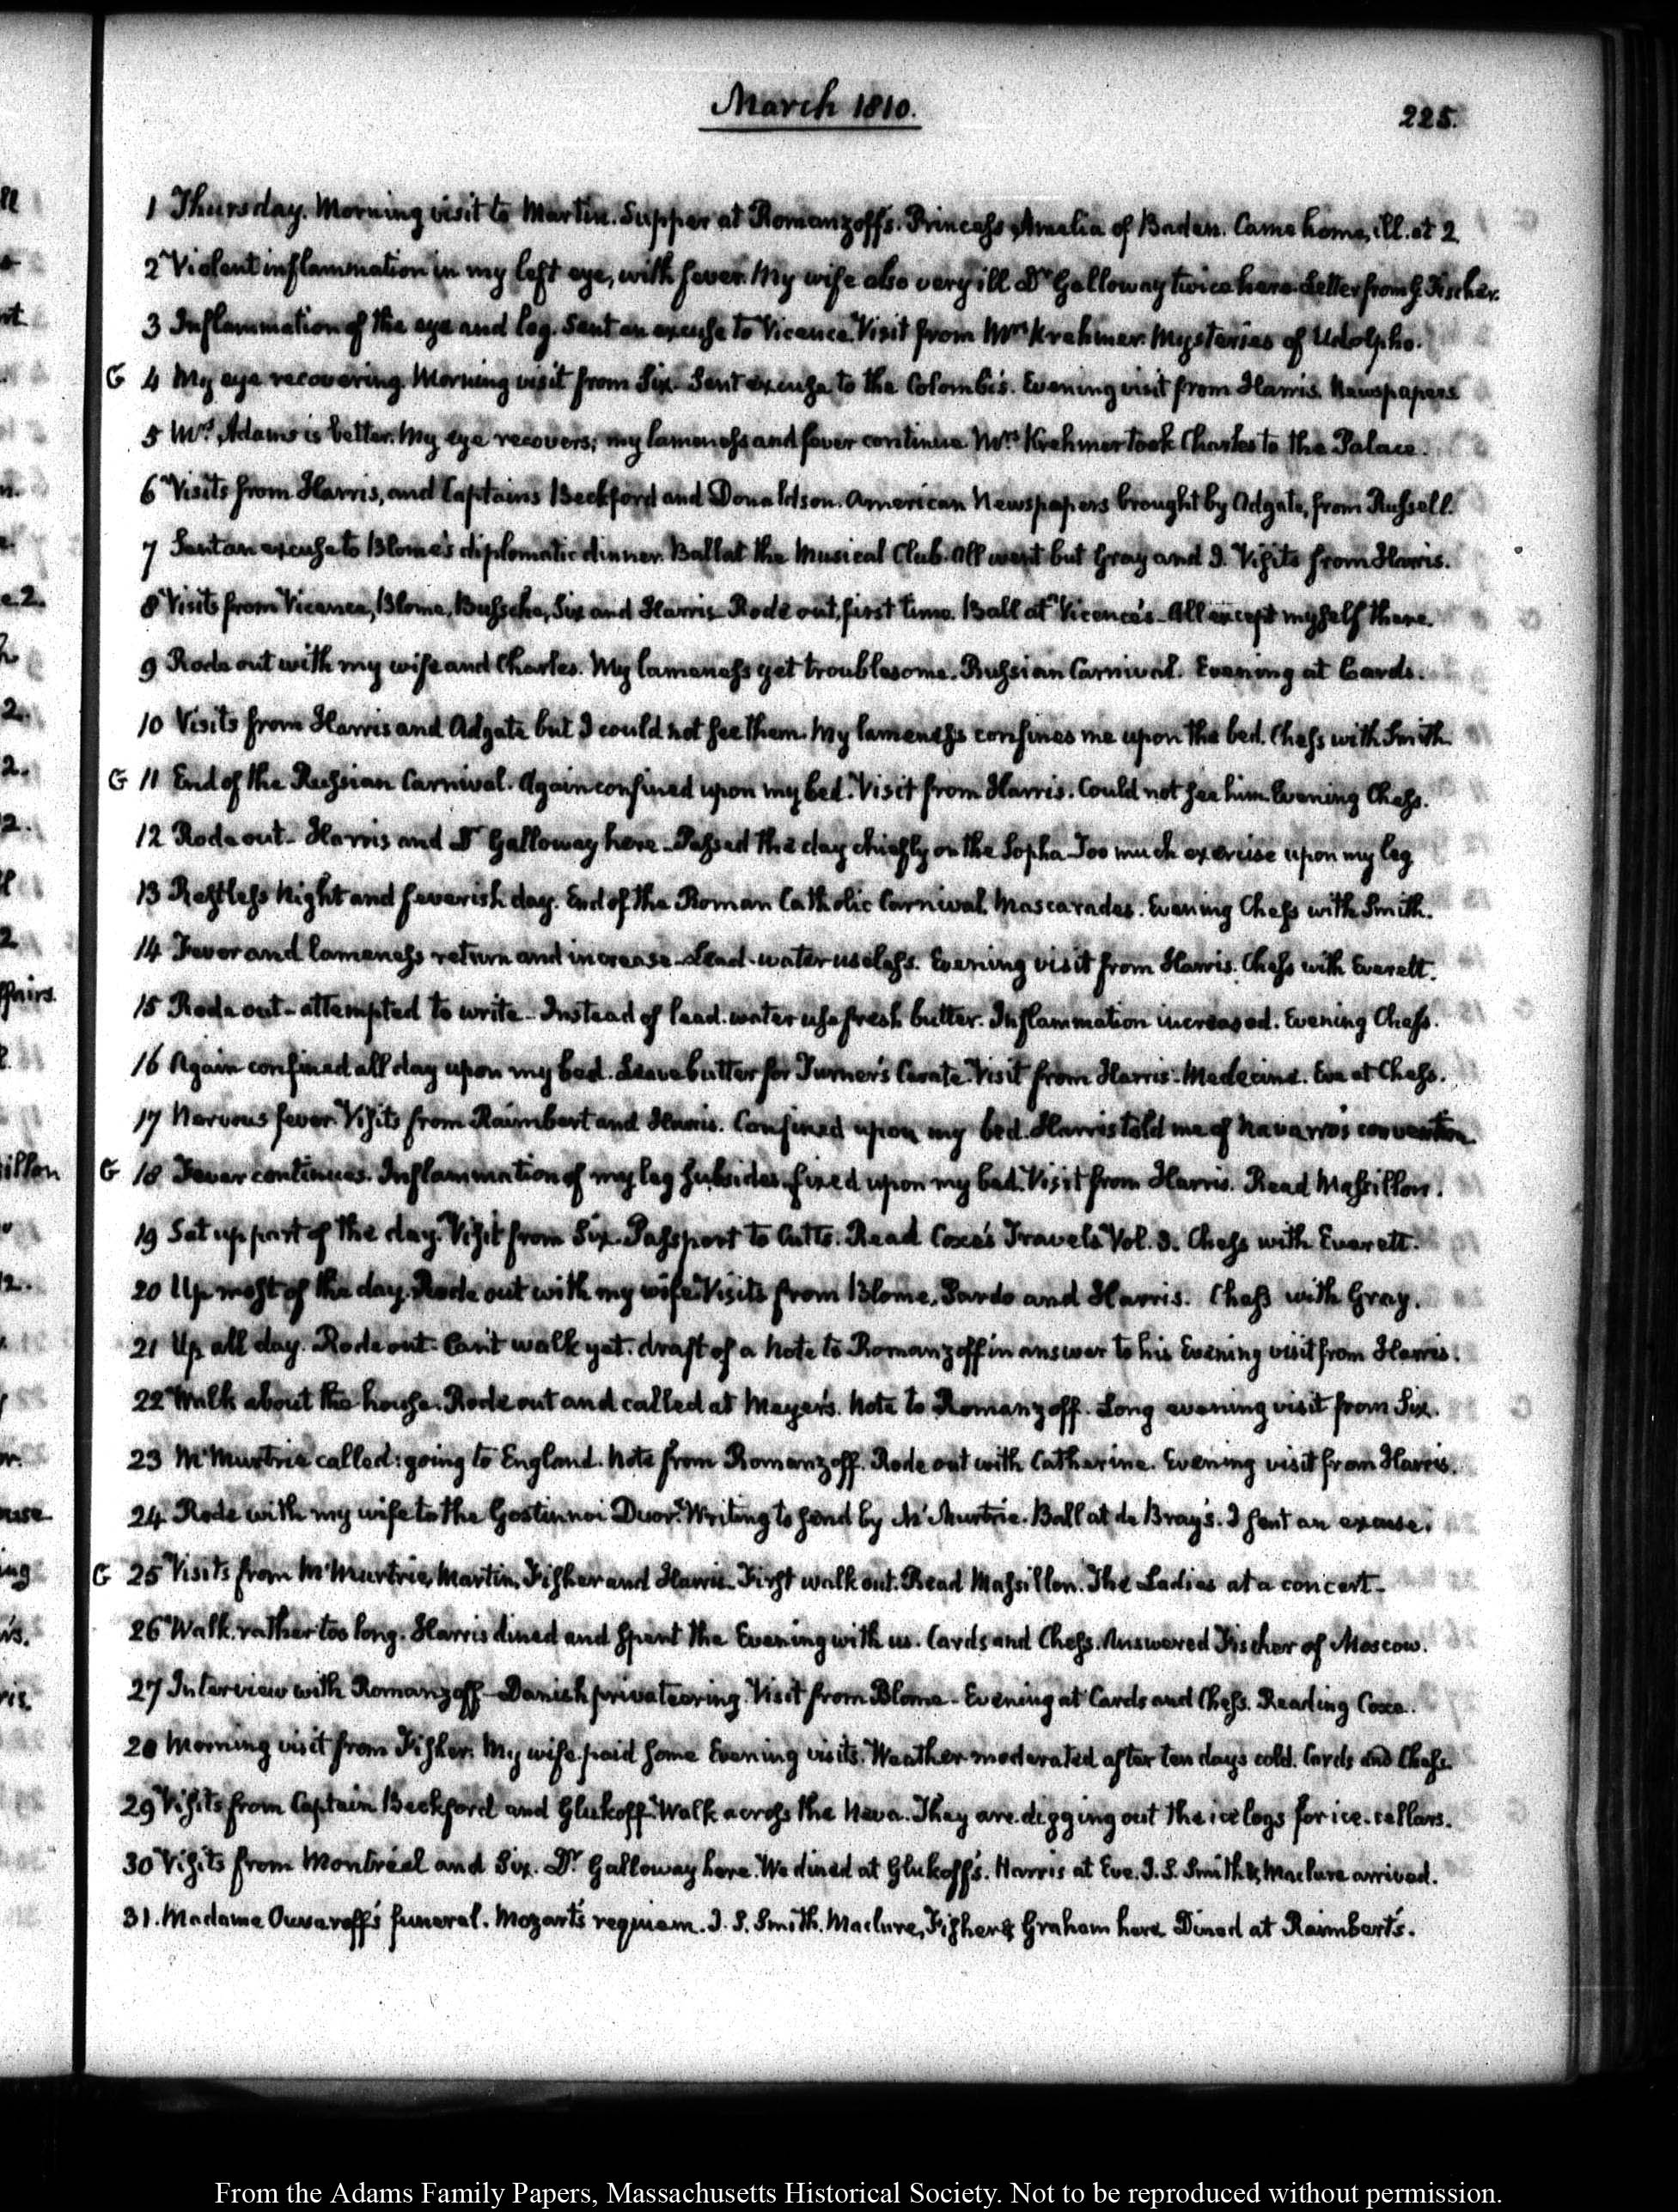 March 1810.
225.
1 Thursday. Morning visit to Martin. Supper at Romanzoff's. Princess Amalia of Baden. Came home, ill. at 2
2 Violent inflammation in my left eye, with fever. My wife also very ill Dr Galloway twice here. Letter from G. Fischer.
3 Inflammation of the eye and leg. Sent an excuse to Vicence. Visit from Mrs Krehmer. Mysteries of Udolpho.
G 4 My eye recovering. Morning visit from Six. Sent excuse to the Colombi's. Evening visit from Harris. Newspapers
5 Mrs. Adams is better. My eye recovers; my lameness and fever continue. Mrs. Krehmer took Charles to the Palace.
6 Visits from Harris, and Captains Beckford and Donaldson. American Newspapers brought by Adgate, from Russell.
7 Sent an excuse to Blome's diplomatic dinner. Ball at the Musical Club. All went but Gray and I. Visits from Harris.
8 Visits from Vicence, Blome, Bussche, Six and Harris. Rode out, first time. Ball at Vicence's. All except myself there.
9 Rode out with my wife and Charles. My lameness yet troublesome. Russian Carnival. Evening at Cards.
10 Visits from Harris and Adgate but I could not see them. My lameness confines me upon the bed. Chess with Smith.
G 11 End of the Russian Carnival. Again confined upon my bed. Visit from Harris. Could not see him. Evening Chess.
12 Rode out. Harris and Dr Galloway here. Passed the day chiefly on the Sopha. Too much exercise upon my leg
13 Restless Night and feverish day. End of the Roman Catholic Carnival. Mascarades. Evening Chess with Smith.
14 Fever and lameness return and increase. Lead-water useless. Evening visit from Harris. Chess with Everett.
15 Rode out - attempted to write - Instead of lead-water use fresh butter. Inflammation increased. Evening Chess.
16 Again confined all day upon my bed. Leave butter for Turner's Cerate. Visit from Harris. Medecine. Eve at Chess.
17 Nervous fever. Visits from Raimbert and Harris. Confined upon my bed. Harris told me of Navarro's convention
G 18 Fever continues. Inflammation of my leg subsides. fixed upon my bed. Visit from Harris. Read Massillon.
19 Sat up part of the day. Visit from Six. Passport to Cutts. Read Coxe's Travels Vol. 3. Chess with Everett.
20 Up most of the day. Rode out with my wife. Visits from Blome, Pardo and Harris. Chess with Gray.
21 Up all day. Rode out. Can't walk yet. draft of a Note to Romanzoff in answer to his Evening visit from Harris.
22 Walk about the house. Rode out and called at Meyer's. Note to Romanzoff. Long evening visit from Six.
23 McMurtrie called: going to England. Note from Romanzoff. Rode out with Catharine. Evening visit from Harris.
24 Rode with my wife to the Gostinnoi Dvor. Writing to send by McMurtrie. Ball at de Bray's. I sent an excuse.
G 25 Visits from McMurtrie, Martin, Fisher and Harris. First walk out. Read Massillon. The Ladies at a concert.
26 Walk. rather too long. Harris dined and spent the Evening with us. Cards and Chess. Answered Fischer of Moscow.
27 Interview with Romanzoff - Danish privateering. Visit from Blome - Evening at Cards and Chess. Reading Coxe.
28 Morning visit from Fisher. My wife paid some Evening visits. Weather moderated after ten days cold. Cards and Chess.
29 Visits from Captain Beckford and Glukoff. Walk across the Neva. They are digging out the ice logs for ice-cellars.
30 Visits from Montréal and Six. Dr. Galloway here. We dined at Glukoff's. Harris at Eve. J. S. Smith & Maclure arrived.
31. Madame Ouvaroff's funeral. Mozart's requiem. J. S. Smith. Maclure, Fisher & Graham here. Dined at Raimbert's.
From the Adams Family Papers, Massachusetts Historical Society. Not to be reproduced without permission.